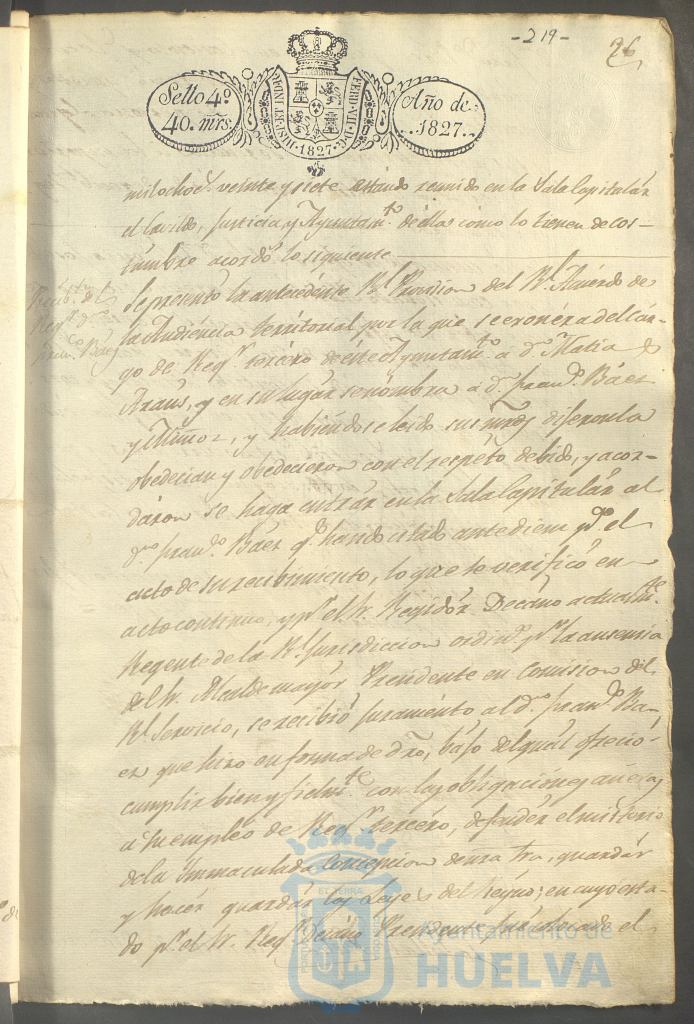 -219-
26
Sello 4º
40. mrs.
HISP. ET IND. R. FERD. VII. D. G.
1827
Año de
1827.
mil ochocs. veinte y siete estando reunido en la Sala Capitulár
el Cavildo, Justicia, y Ayuntamto. de ella como lo tienen de cos-
tumbre acordó lo siguiente
Recibto. del
Regr. 3º Dn.
Franco. Baez
Se presento la antecedente Rl. Provision del Rl. Acuérdo de
la Audiéncia territorial por la que se exonéra del cár-
go de Regr. tercéro de éste Ayuntamto. a Dn. Matia
Araus, y en su lugár se nómbra a Dn. Franco. Báez
y Muñoz, y habiéndose leido sus mrds. dijeron la
obedecian y obedecieron con el respéto debido, y acor-
dáron se haga entrár en la Sala Capitulár al
Dno. Franco. Báez qe. han do citado antediem pa. el
acto de su recibimiento, lo que se verificó en
acto continuo, y pr. el Sr. Regidór Decáno actualmte.
Regente de la Rl. Jurisdiccion ordina. pr. la ausencia
del Sr. Alcalde mayór Presidente en Comision del
Rl. Servicio, se recibió juraménto al Dn. Franco. Ba-
ez que hizo en forma de dro, bájo del quál ofreció
cumplir bien y fielmte. con las obligaciónes anéxas
a su empléo de Regr. tercéro, defendér el mistério
de la Immaculada Concepcion de nra Sra, guardár
y hacér guardár las Leyes del Réyno; en cuyo esta-
do pr. el Sr. Regr. Decáno Presidente fue colocado el
Ayuntamiento de
HUELVA